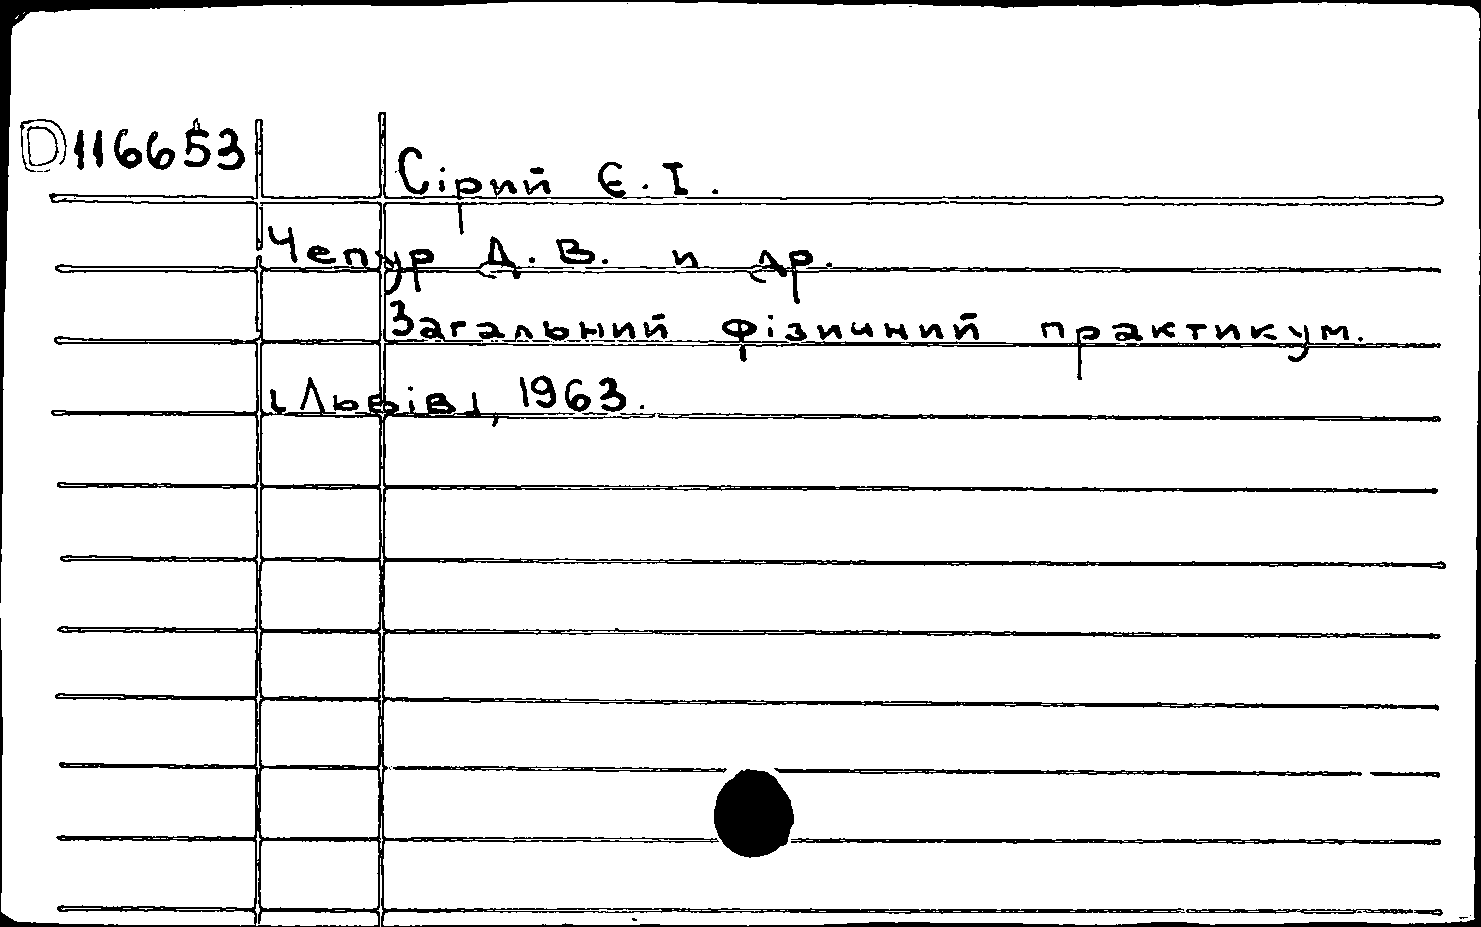 D116653
Сірий Є. І.
Чепур Д. В. и др.
Загальний фізичний практикум.
[Львів], 1963.